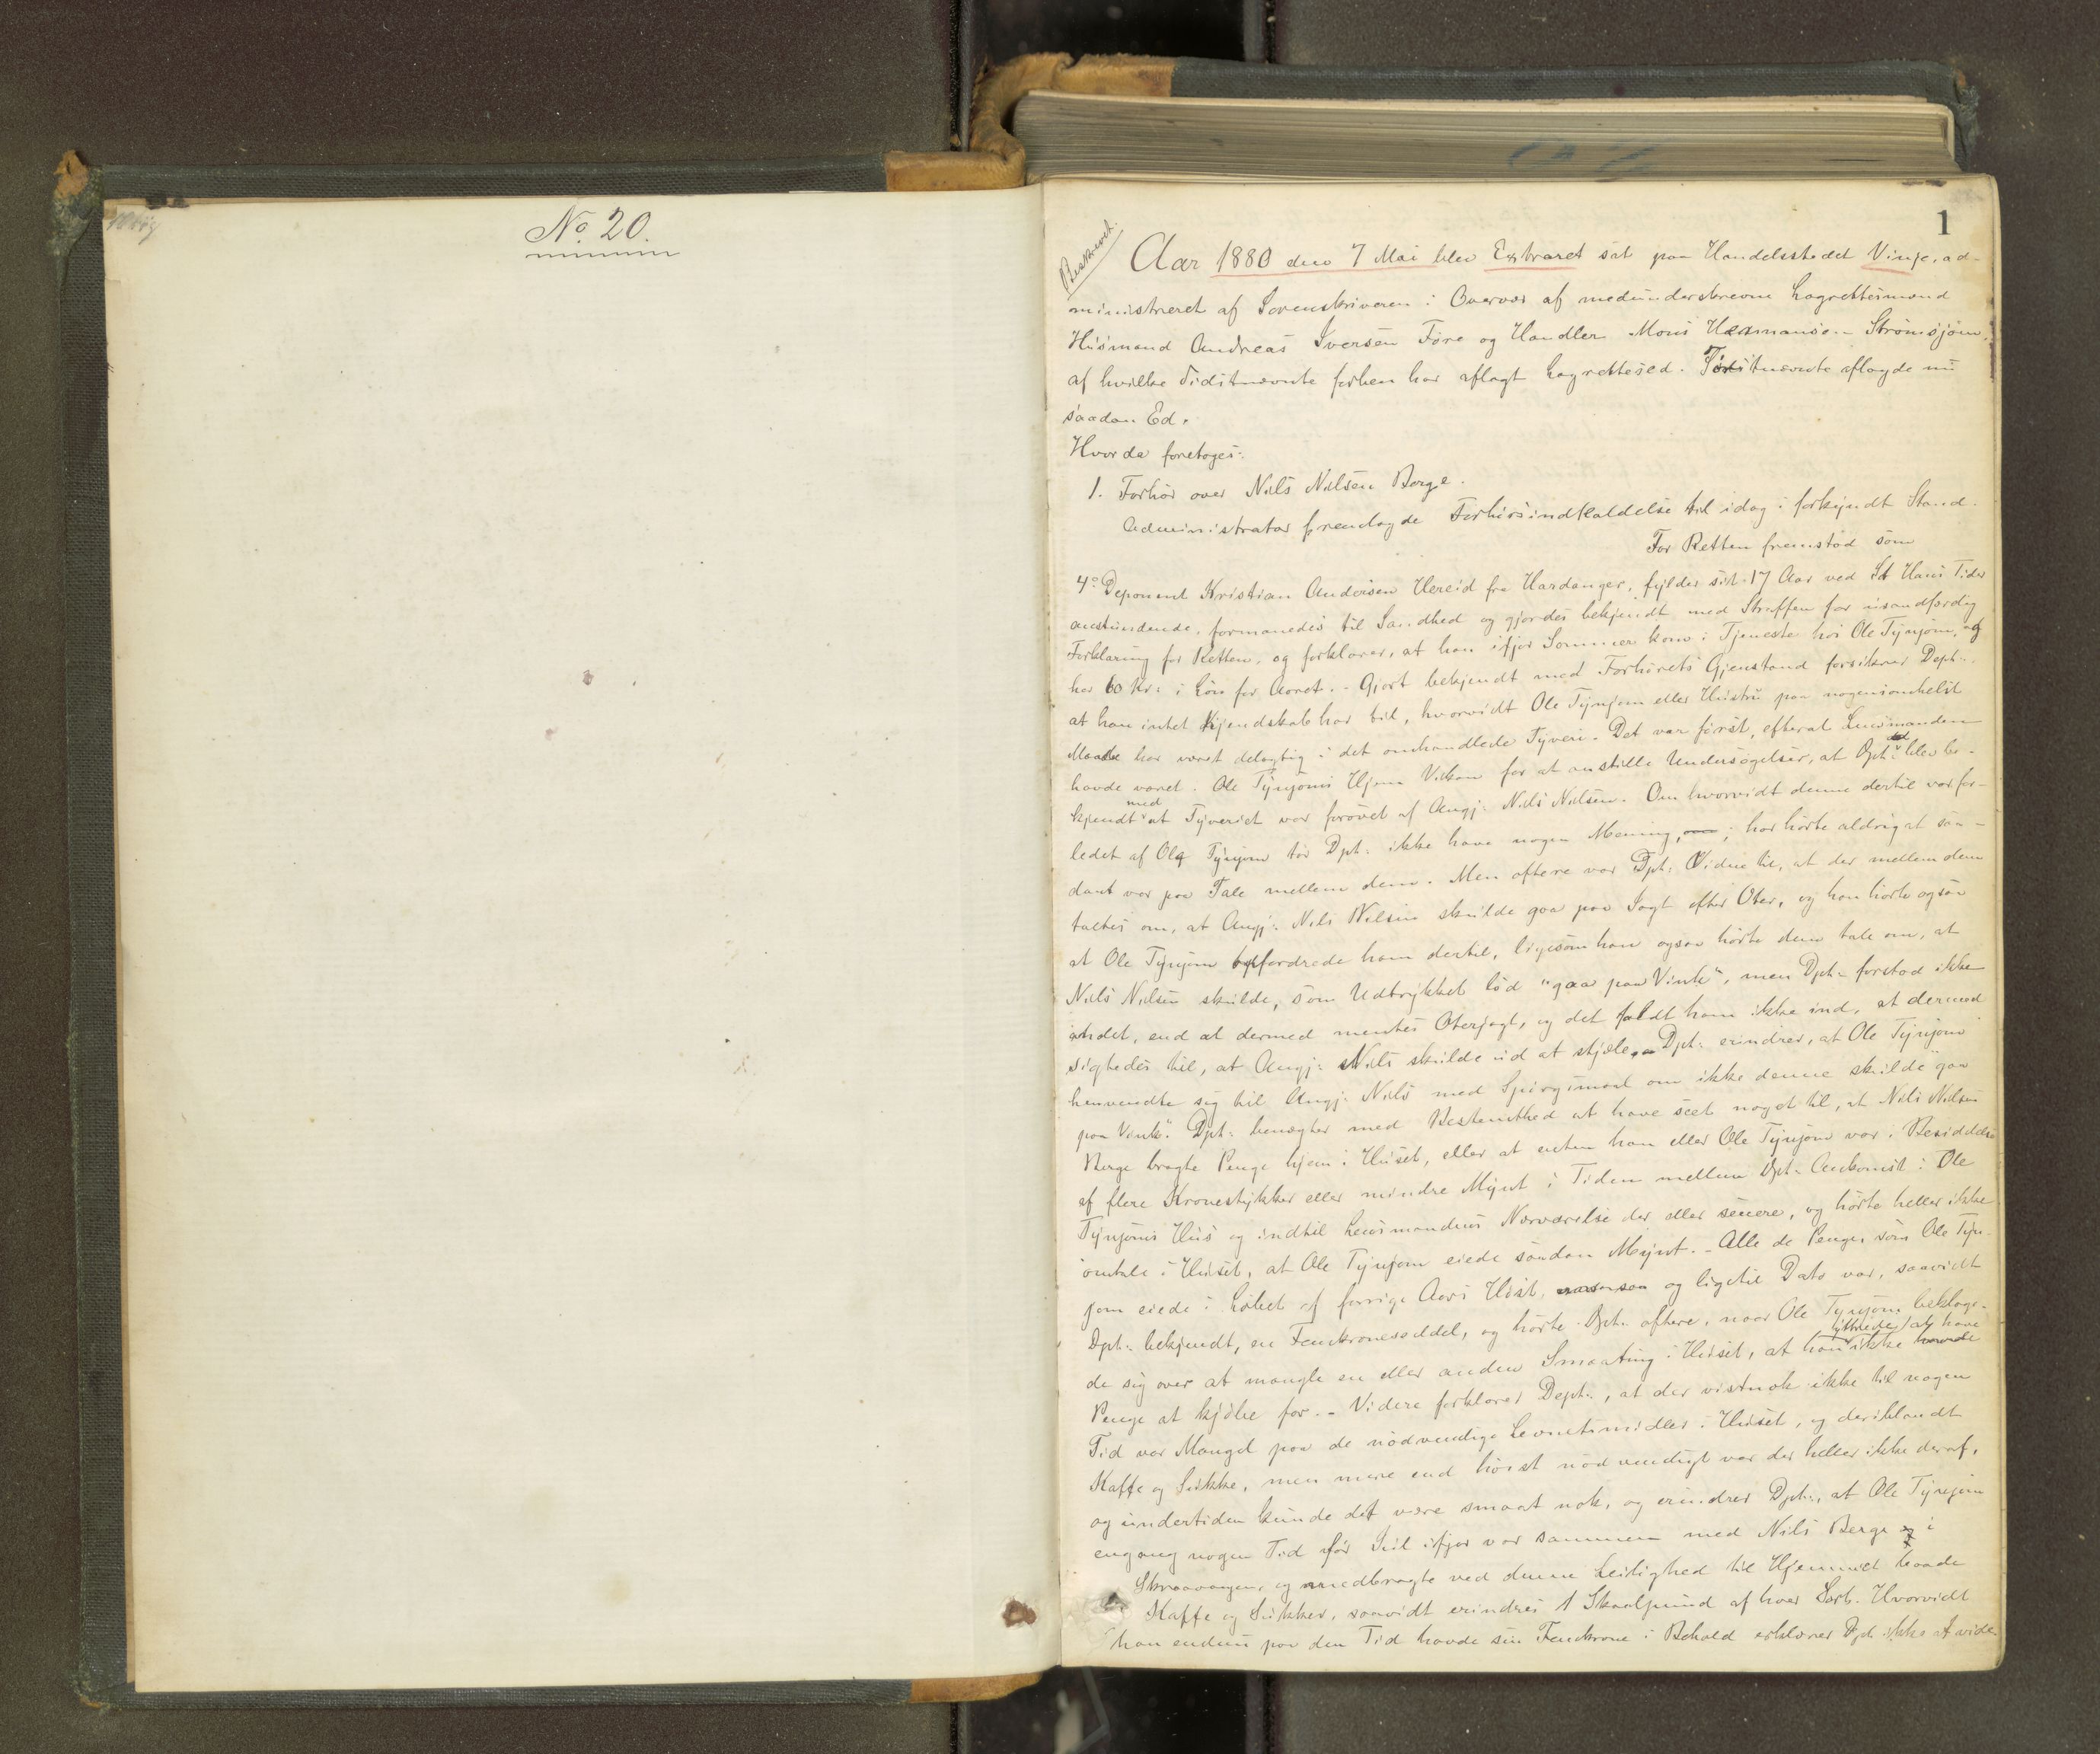 No. 20.
1
Beskrevet.
Aar 1880 den 7 Mai blev Extraret sat paa Handelsstedet Vinje, ad-
ministreret af Sorenskriveren i Overvær af medunderskrevne Lagrettesmænd
Husmand Andreas Iversen Føre og Handler Mons Hermansen Strømsjøen,
af hvilke Sidstnævnte forhen har aflagt Lagretteseed. Førstnævnte aflagde nu
saadan Ed.
Hvorda foretoges:
1. Forhør over Nils Nilsen Berge.
Administrator fremlagde Forhørsindkaldelse til idag i forkyndt Stand.
For Retten fremstod som
4o Deponent Kristian Andersen Hereid fra Hardanger, fylder sit 17 Aar ved St Hans Tider
anstundende, formanedes til Sandhed og gjordes bekjendt med Straffen for usandfærdig
Forklaring for Retten, og forklarer, at han ifjor Sommer kom i Tjeneste hos Ole Tynjom, og
har 60 Kr: i Løn for Aaret. - Gjort bekjendt med Forhørets Gjenstand forsikrer Dept:
at han intet Kjendskab har til, hvorvidt Ole Tynjom eller Hustru paa nogensomhelst
Maade har været delagtig i det omhandlede Tyveri. Det var først, efterat Lensmanden
havde været i Ole Tynjoms Hjem Vikan for at anstille Undersøgelser, at Dpt: blev be-
kjendt med at Tyveriet var forøvet af Angj: Nils Nilsen. Om hvorvidt denne dertil var for-
ledet af Ole Tynjom tør Dpt: ikke have nogen Mening, ; han hørte aldrig at saa-
dant var paa Tale mellem dem. Men oftere var Dpt: Vidne til, at der mellem dem
taltes om, at Angj: Nils Nilsen skulde gaa paa Jagt efter Oter, og han hørte ogsaa
at Ole Tynjom opfordrede ham dertil, ligesom han ogsaa hørte dem tale om, at
Nils Nilsen skulde, som Udtrykket lød "gaa paa Vink", men Dpt: forstod ikke
andet, end at dermed mentes Oterjagt, og det faldt ham ikke ind, at dermed
sigtedes til, at Angj: Nils skulde ud at stjæle. Dpt: erindrer, at Ole Tynjom
henvendte sig til Angj: Nils med Spørgsmaal om ikke denne skulde "gaa
paa Vink". Dpt: benægter med Bestemthed at have seet noget til, at Nils Nilsen
Berge bragte Penge hjem i Huset, eller at enten han eller Ole Tynjom var i Besiddelse
af flere Kronestykker eller mindre Mynt i Tiden mellem Dpt: Ankomst i Ole
Tynjoms Hus og indtil Lensmandens Nærværelse der eller senere, og hørte heller ikke
omtale i Huset, at Ole Tynjom eiede saadan Mynt. - Alle de Penge, som Ole Tyn-
jom eiede i Løbet af forrige Aars Høst, og ligetil Dato var, saavidt
Dpt: bekjendt, en Femkroneseddel, og hørte Dpt: oftere, naar Ole Tynjom beklage-
de sig over at mangle en eller anden Smaating i Huset, at han yttrede ikke at have
Penge at kjøbe for. - Videre forklarer Dept:, at der vistnok ikke til nogen
Tid var Mangel paa de nødvendige Levnetsmidler i Huset, og deriblandt
Kaffe og Sukke, men mere end høist nødvendigt var der heller ikke deraf,
og undertiden kunde det være smaat nok, og erindrer Dpt:, at Ole Tynjom
engang nogen Tid før Jul ifjor var sammen med Nils Berge i
Skraavaagen, og medbragte ved denne Leilighed til Hjemmet baade
Kaffe og Sukker, saavidt erindres 1 Skaalpund af hver Sort. Hvorvidt
han endnu paa den Tid havde sin Femkrone i Behold erklærer Dpt: ikke at vide